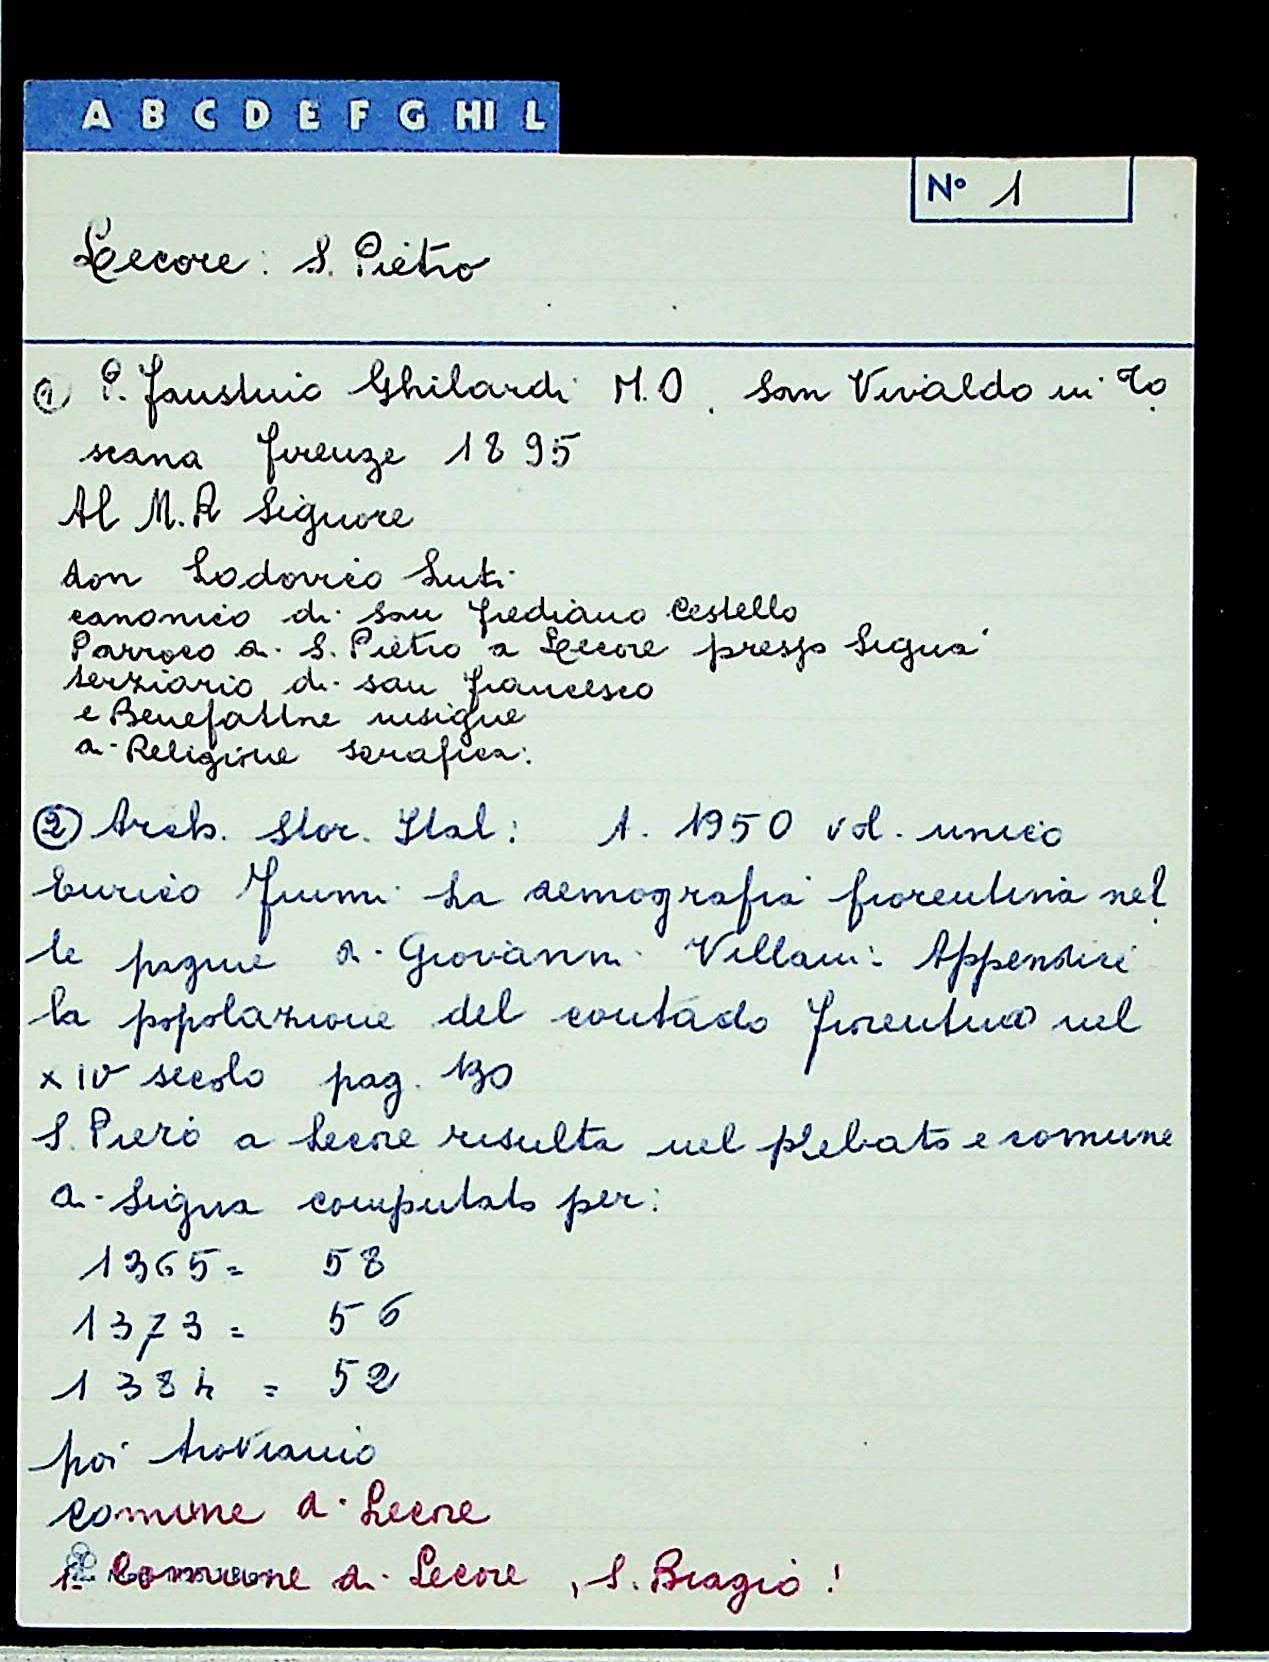 A B C D E F G HI L
N° 1
Lecore: S. Pietro
① P. Faustino Ghilardi M.O. San Vivaldo in To
scana Firenze 1895
Al M.R Signore
don Lodovico Luti
canonico di San Frediano Cestello
Parroco di S. Pietro a Lecore presso Signa
terziario di san Francesco
e Benefattore insigne
di Religione serafica:
② Arch. Stor. Ital: A. 1950 vol. unico
Enrico Fiumi La demografia fiorentina nel
le pagine di Giovanni Villani: Appendice
la popolazione del contado fiorentino nel
XIV secolo pag. 130
S. Piero a Lecore risulta nel plebato e comune
di Signa computato per:
1365 = 58
1373 = 56
1384 = 52
poi troviamo
comune di Lecore
Comune di Lecore, S. Biagio!